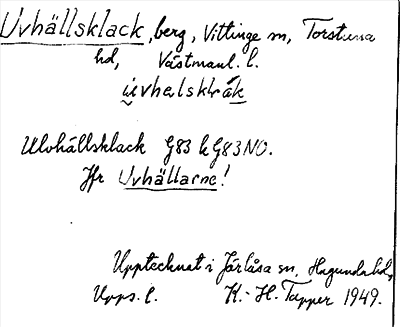 Uvhällsklack, berg, Vittinge sn, Torstuna
hd, Västmanl. l.
Ulvhällsklack G83 k G83NO.
Jfr Uvhällarne!
Upptecknat i Järlåsa sn, Hagunda hd,
Upps. l. K.-H. Tapper 1949.